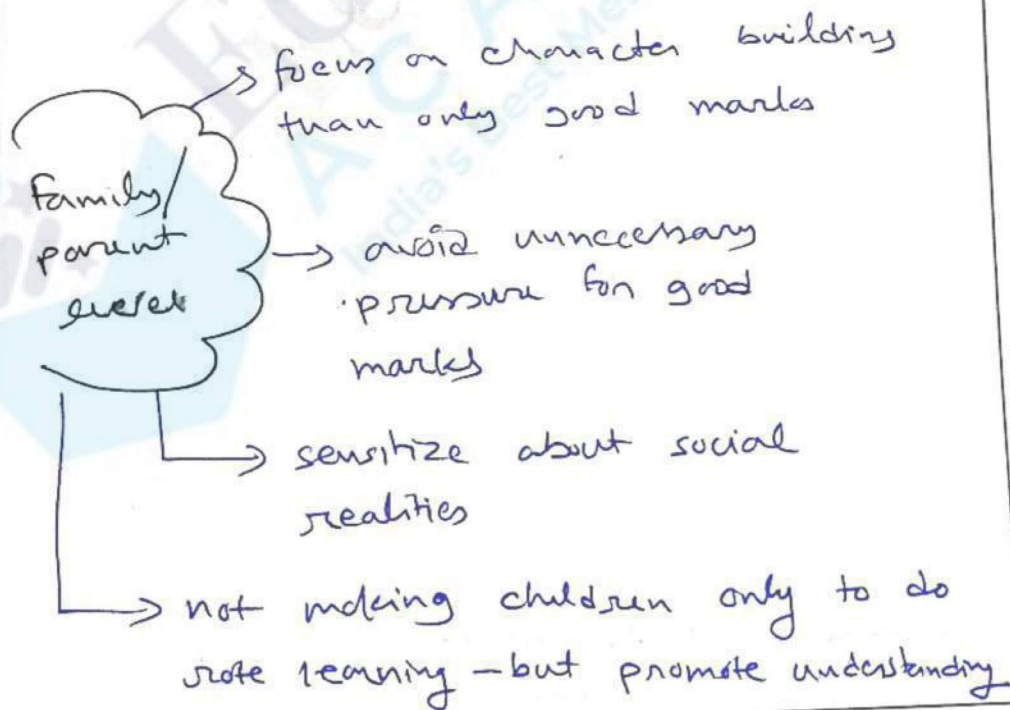 focus on character building
than only good marks
Family/
parent
level
avoid unneccessary
pressure for good
marks
sensitize about social
realities
not making children only to do
rote learning – but promote understanding
India's Best Me